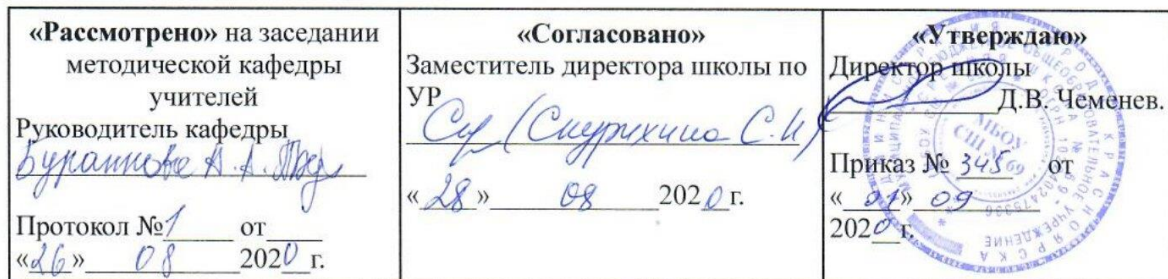 «Рассмотрено» на заседании
методической кафедры
учителей
Руководитель кафедры
Протокол №1 от
«26» 08 2020 г.
«Согласовано»
Заместитель директора школы по
УР
(Скурихина С.И)
«28» 08 2020 г.
«Утверждаю»
Директор школы
Д.В. Чеменев.
Приказ № 345 от
«01» 09
2020 г.
МБОУ
СШ № 69